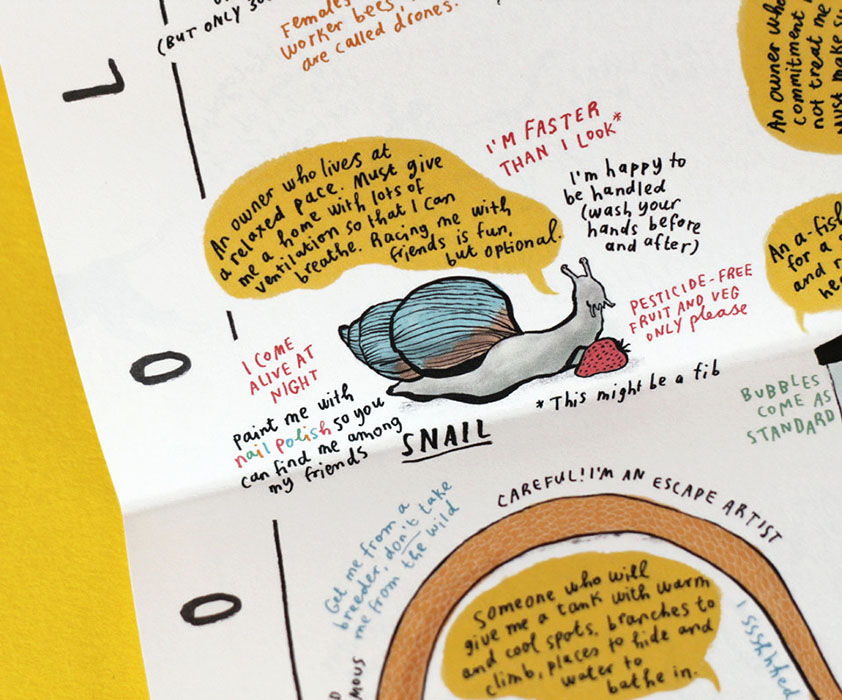 (BUT ONLY
Females
worker bees,
are called drones.
L
An owner who
commitment
not treat me
Must make
I'M FASTER
THAN I LOOK*
An owner who lives at
a relaxed pace. Must give
me a home with lots of
ventilation so that I can
breathe. Racing me with
friends is fun,
but optional.
I'm happy to
be handled
(wash your
hands before
and after)
An a-fish
for a
and
PESTICIDE-FREE
FRUIT AND VEG
ONLY please
I COME
ALIVE AT
NIGHT
O
*This might be a fib
Paint me with
nail polish so you
can find me among
my friends
SNAIL
BUBBLES
COME AS
STANDARD
CAREFUL! I'M AN ESCAPE ARTIST
Get me from a
breeder, don't take
me from the wild
O
Someone who will
give me a tank with warm
and cool spots, branches to
climb, places to hide and
water to
bathe in.